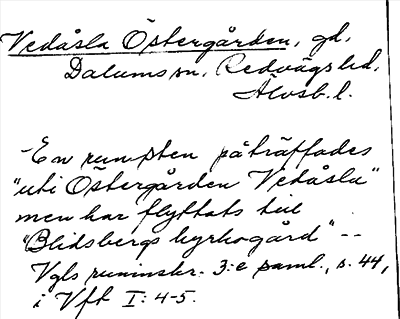 Vedåsla Östergården, gd,
Dalums sn, Redvägs hd,
Älvsb. l.
- En runsten påträffades
"uti Östergården Vedåsla"
men har flyttats till
"Blidsbergs kyrkogård" --
Vgls runinskr. 3:e saml., s. 44,
i Vft I: 4-5.